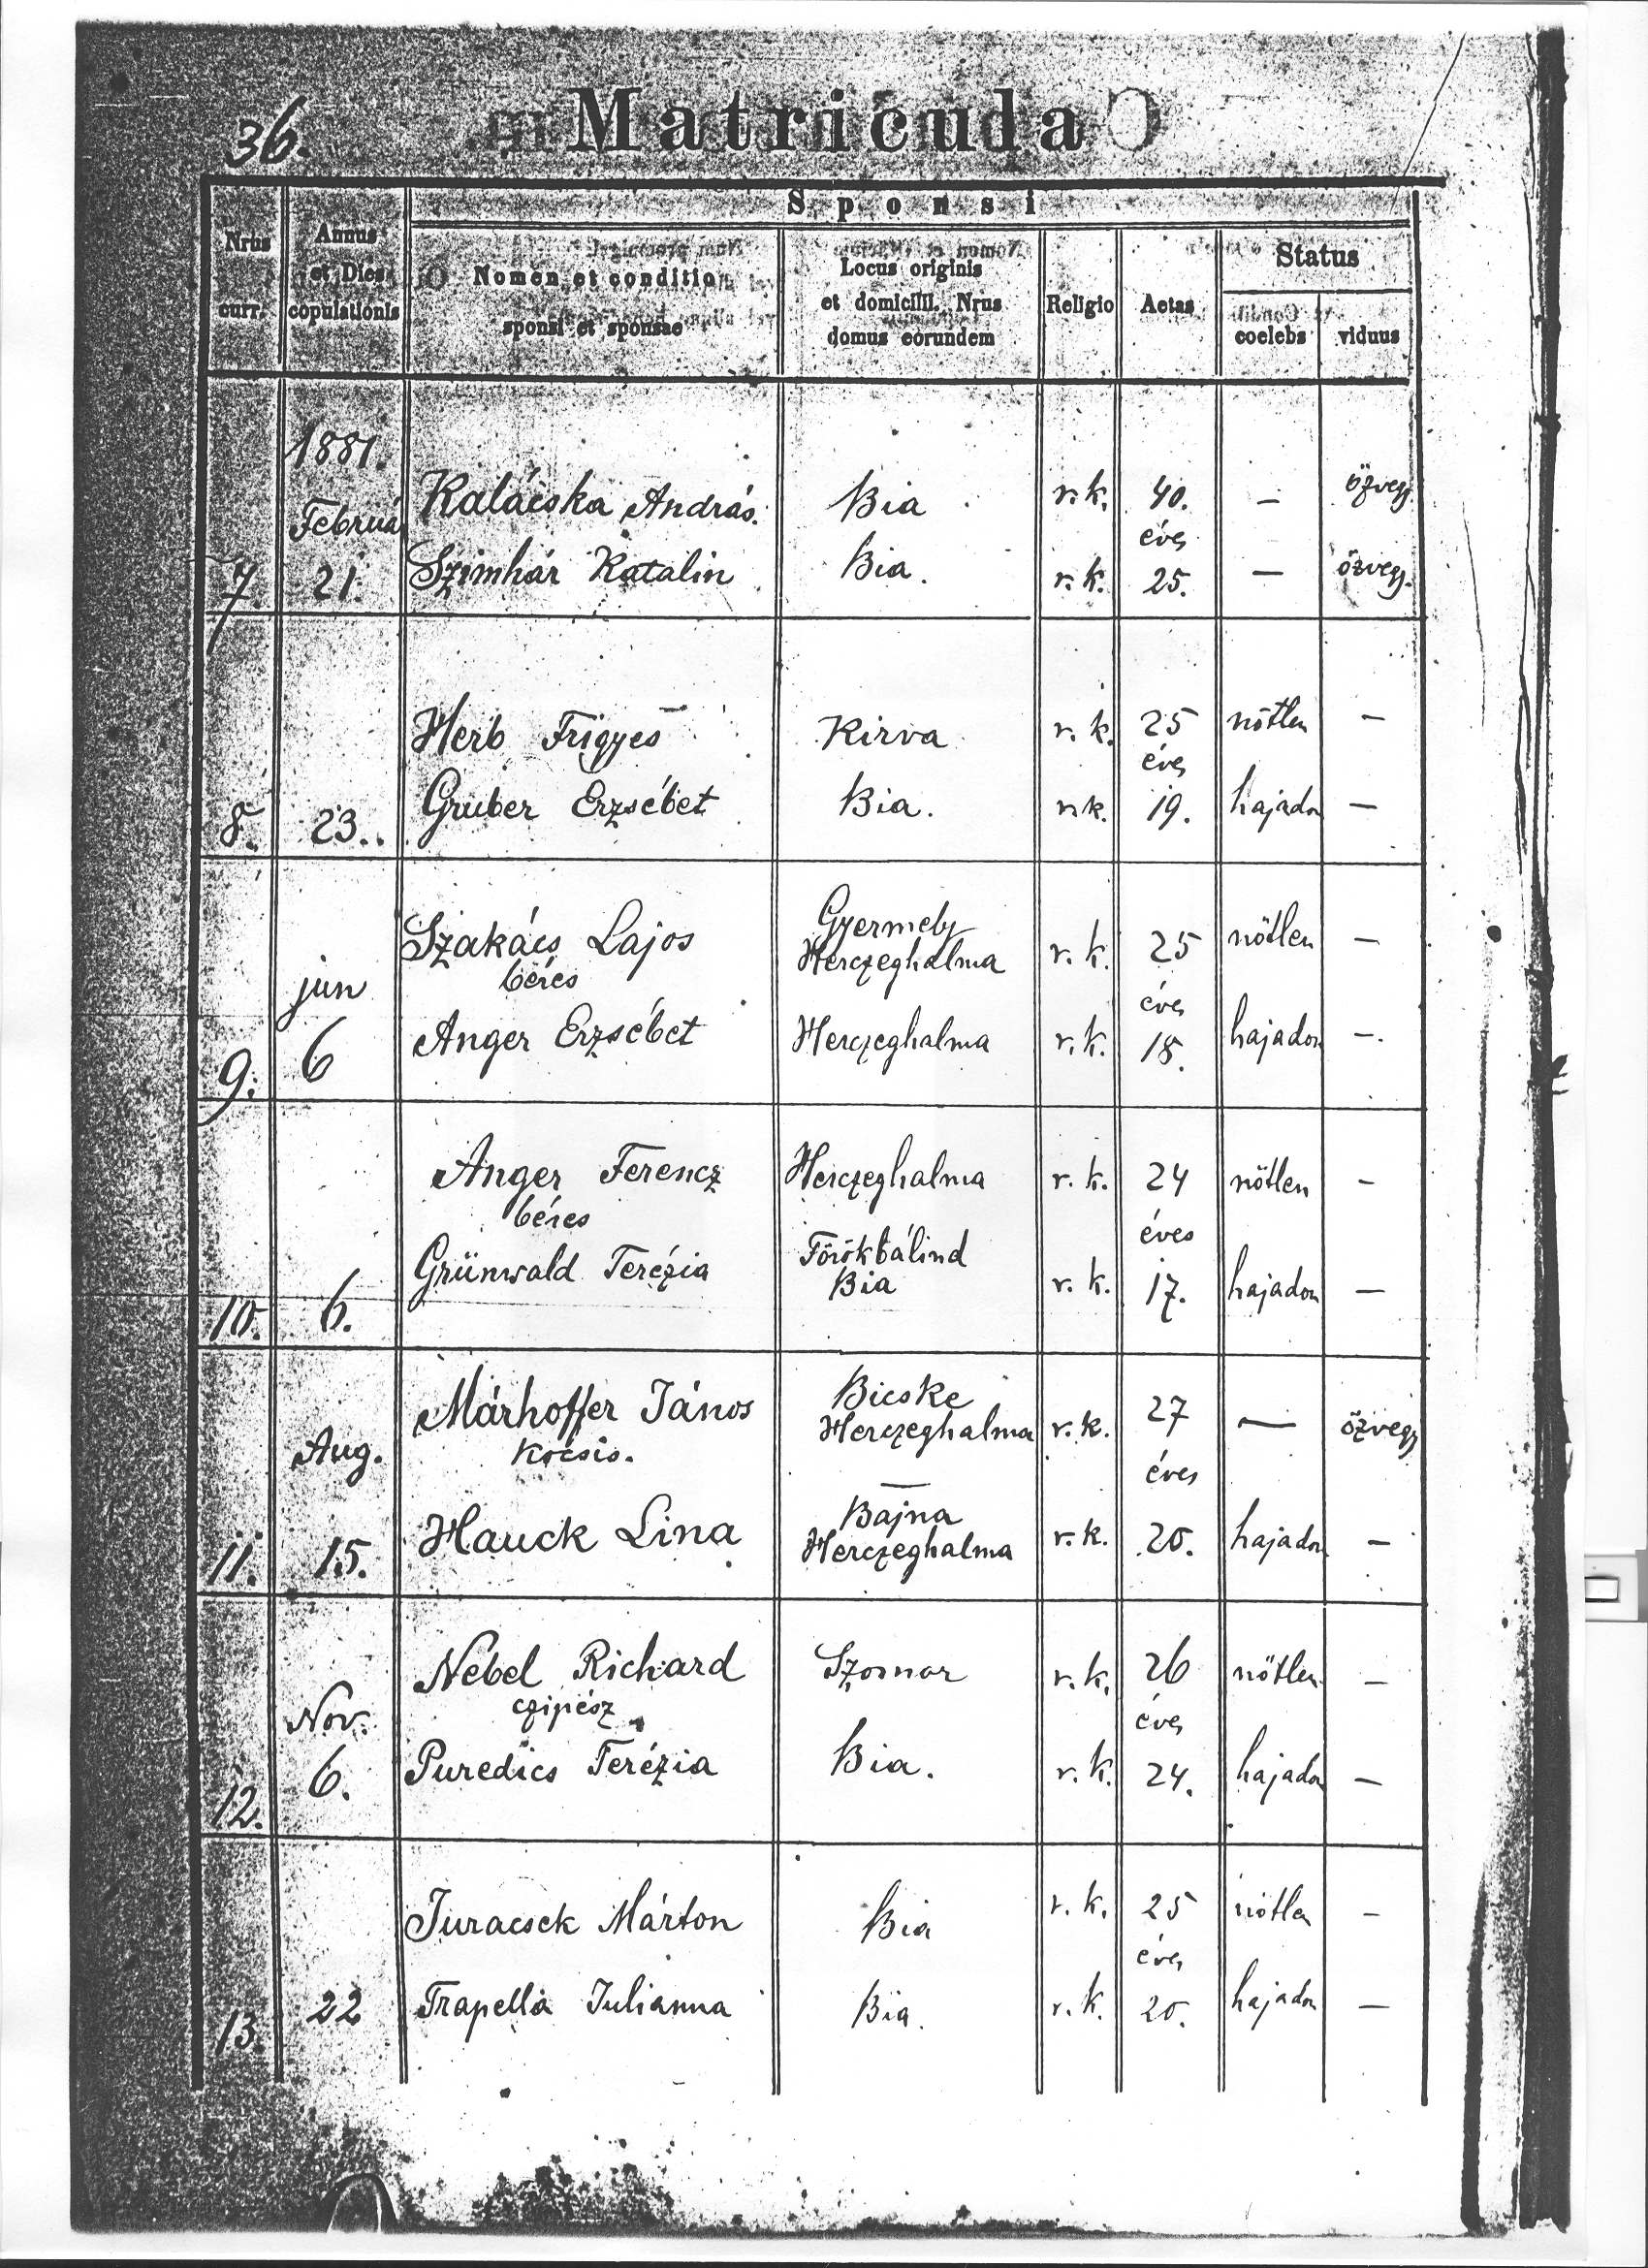 36.
Matricula
Sponsi
Nrus curr.
Annus et Dies copulationis
Nomen et conditio sponsi et sponsae
Locus originis et domicilii. Nrus domus eorundem
Religio
Aetas
Status
coelebs
viduus
1881.
Februá
7 21. Kalácska András. Bia r. k. 40. éves — özvegy
Szimhár Katalin Bia. r. k. 25. — özvegy.
8. 23. Herb Frigyes Kirva r. k. 25 éves nőtlen —
Gruber Erzsébet Bia. r. k. 19. hajadon —
jun
9. 6 Szakács Lajos béres Gyermely Herczeghalma r. k. 25 éves nőtlen —
Anger Erzsébet Herczeghalma r. k. 18. hajadon —.
10. 6. Anger Ferencz béres Herczeghalma r. k. 24 éves nőtlen —
Grünwald Terézia Törökbálind Bia r. k. 17. hajadon —
Aug.
11. 15. Márhoffer János kocsis. Bicske Herczeghalma r. k. 27 éves — özvegy
Hauck Lina Bajna Herczeghalma r. k. 20. hajadon —
Nov.
12. 6. Nebel Richard czipész Szomor r. k. 26 éves nőtlen —
Puredics Terézia Bia. r. k. 24. hajadon —
13. 22 Juracsek Márton Bia r. k. 25 éves nőtlen —
Trapella Julianna Bia. r. k. 20. hajadon —